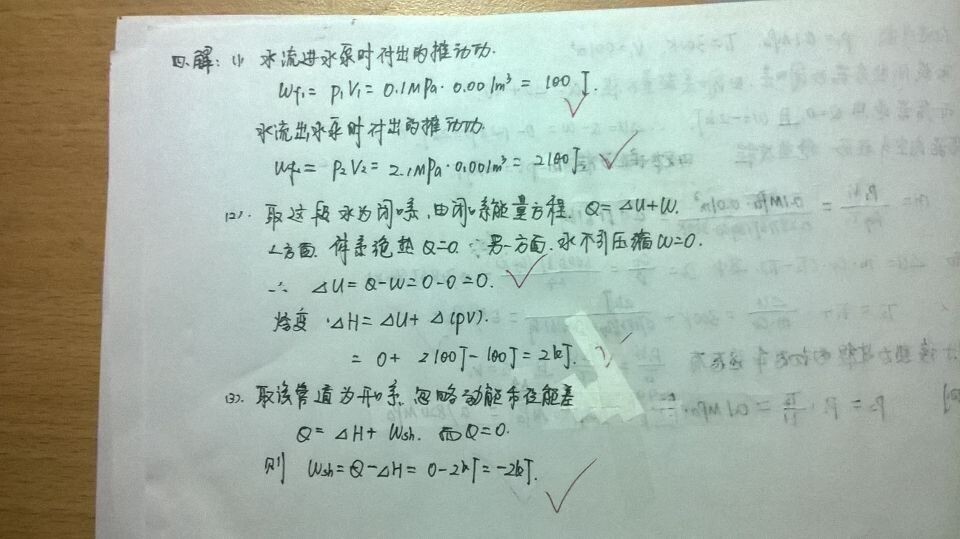 四.解: (1) 水流进水泵时付出的推动功.
Wf1 = P1V1 = 0.1MPa·0.001m³ = 100 J.
水流出水泵时付出的推动功.
Wf2 = P2V2 = 2.1MPa·0.001m³ = 2100J.
(2). 取这段水为闭口系, 由闭口系能量方程. Q = ΔU+W.
一方面. 体系绝热 Q=0. 另一方面. 水不可压缩 W=0.
∴ ΔU = Q-W = 0-0 = 0.
焓变. ΔH = ΔU + Δ(pv).
= 0 + 2100J - 100J = 2kJ.
(3). 取该管道为开口系. 忽略动能和位能差
Q = ΔH + Wsh. 而Q=0.
则 Wsh = Q-ΔH = 0-2kJ = -2kJ.